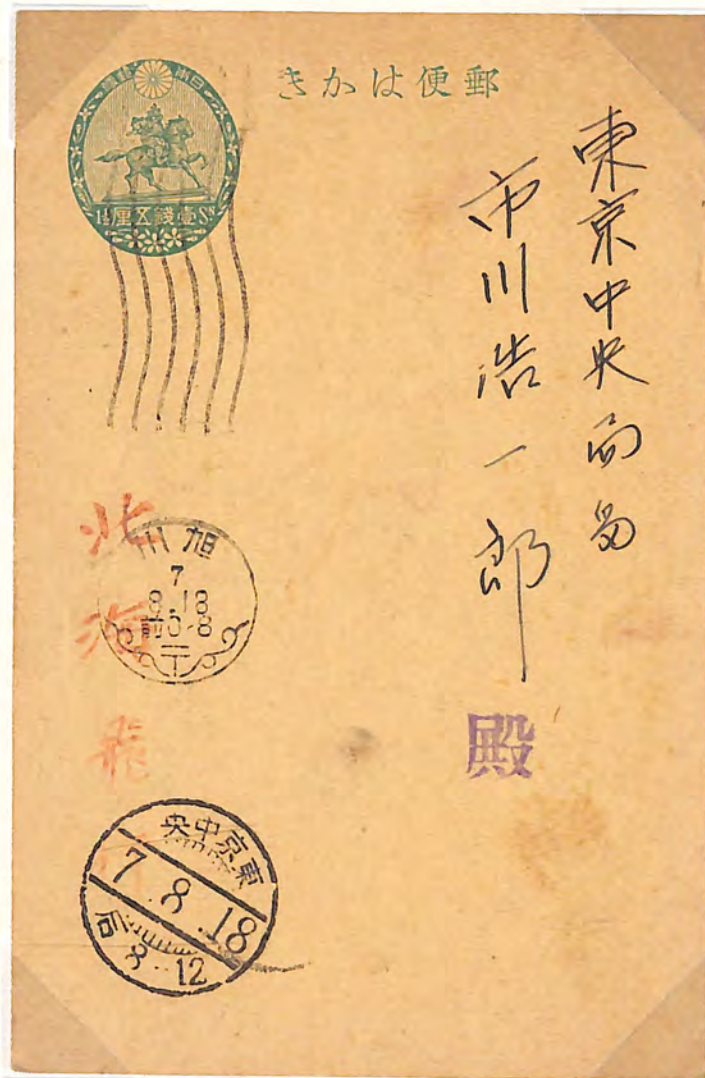 郵便はかき
壹錢五厘
1½ Sn
東京中央局留
市川浩一郎
殿
北海飛
旭川
7
8.18
前0-8
東京中央
7.8.18
后8-12